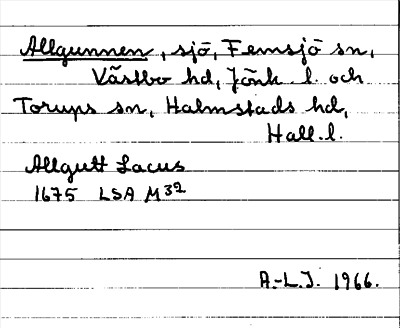 Allgunnen, sjö, Femsjö sn,
Västbo hd, Jönk. l. och
Torups sn, Halmstads hd,
Hall. l.
Allgutt Lacus
1675 LSA M 32
A.-L.J. 1966.